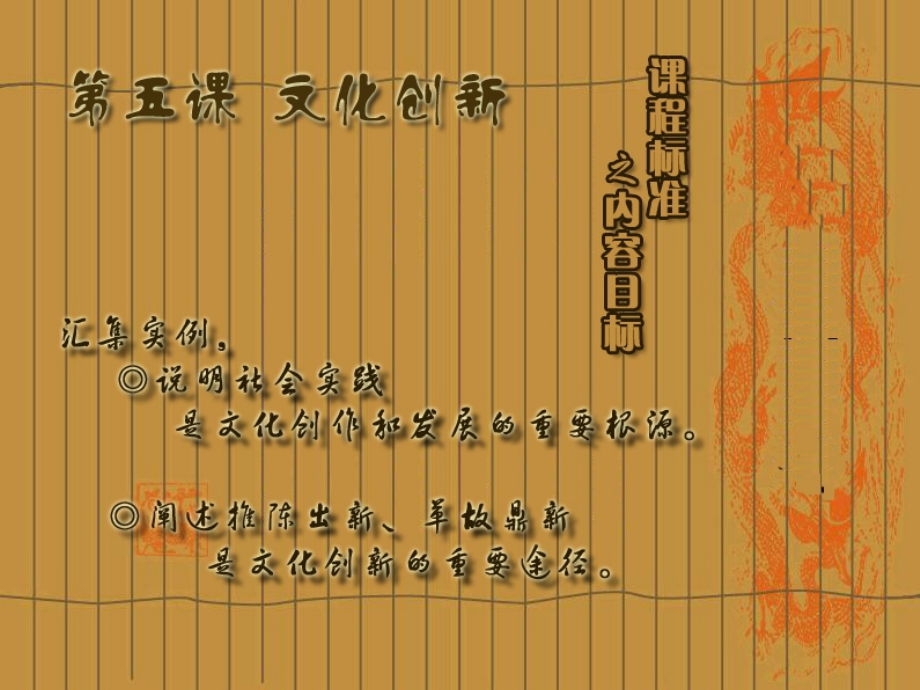 第五课 文化创新
课程标准
之内容目标
汇集实例，
◎说明社会实践
是文化创作和发展的重要根源。
◎阐述推陈出新、革故鼎新
是文化创新的重要途径。